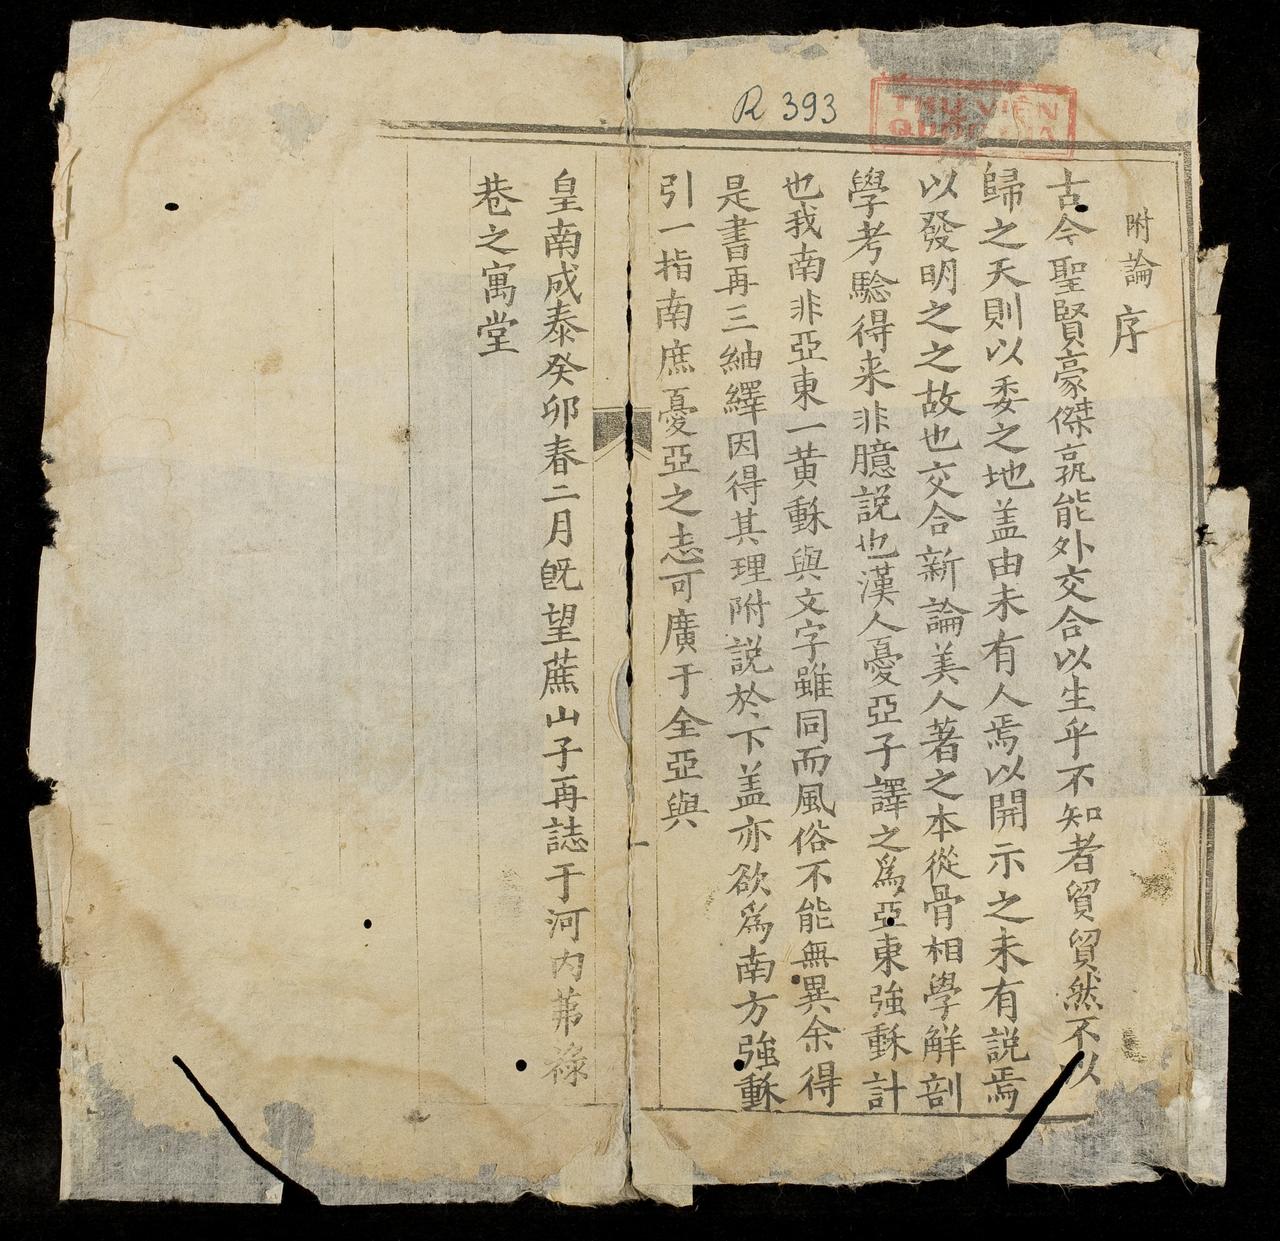 R 393
THƯ VIỆN
附論序
古今聖賢豪傑孰能外交合以生乎不知者貿貿然不以
歸之天則以委之地盖由未有人焉以開示之未有説焉
以發明之之故也交合新論美人著之本從骨相學解剖
學考驗得来非臆説也漢人憂亞子譯之爲亞東強種計
也我南非亞東一黄種與文字雖同而風俗不能無異余得
是書再三紬繹因得其理附説於下盖亦欲爲南方強種
引一指南庶憂亞之志可廣于全亞與
一
皇南成泰癸卯春二月既望蔗山子再誌于河内第禄
巷之寓堂